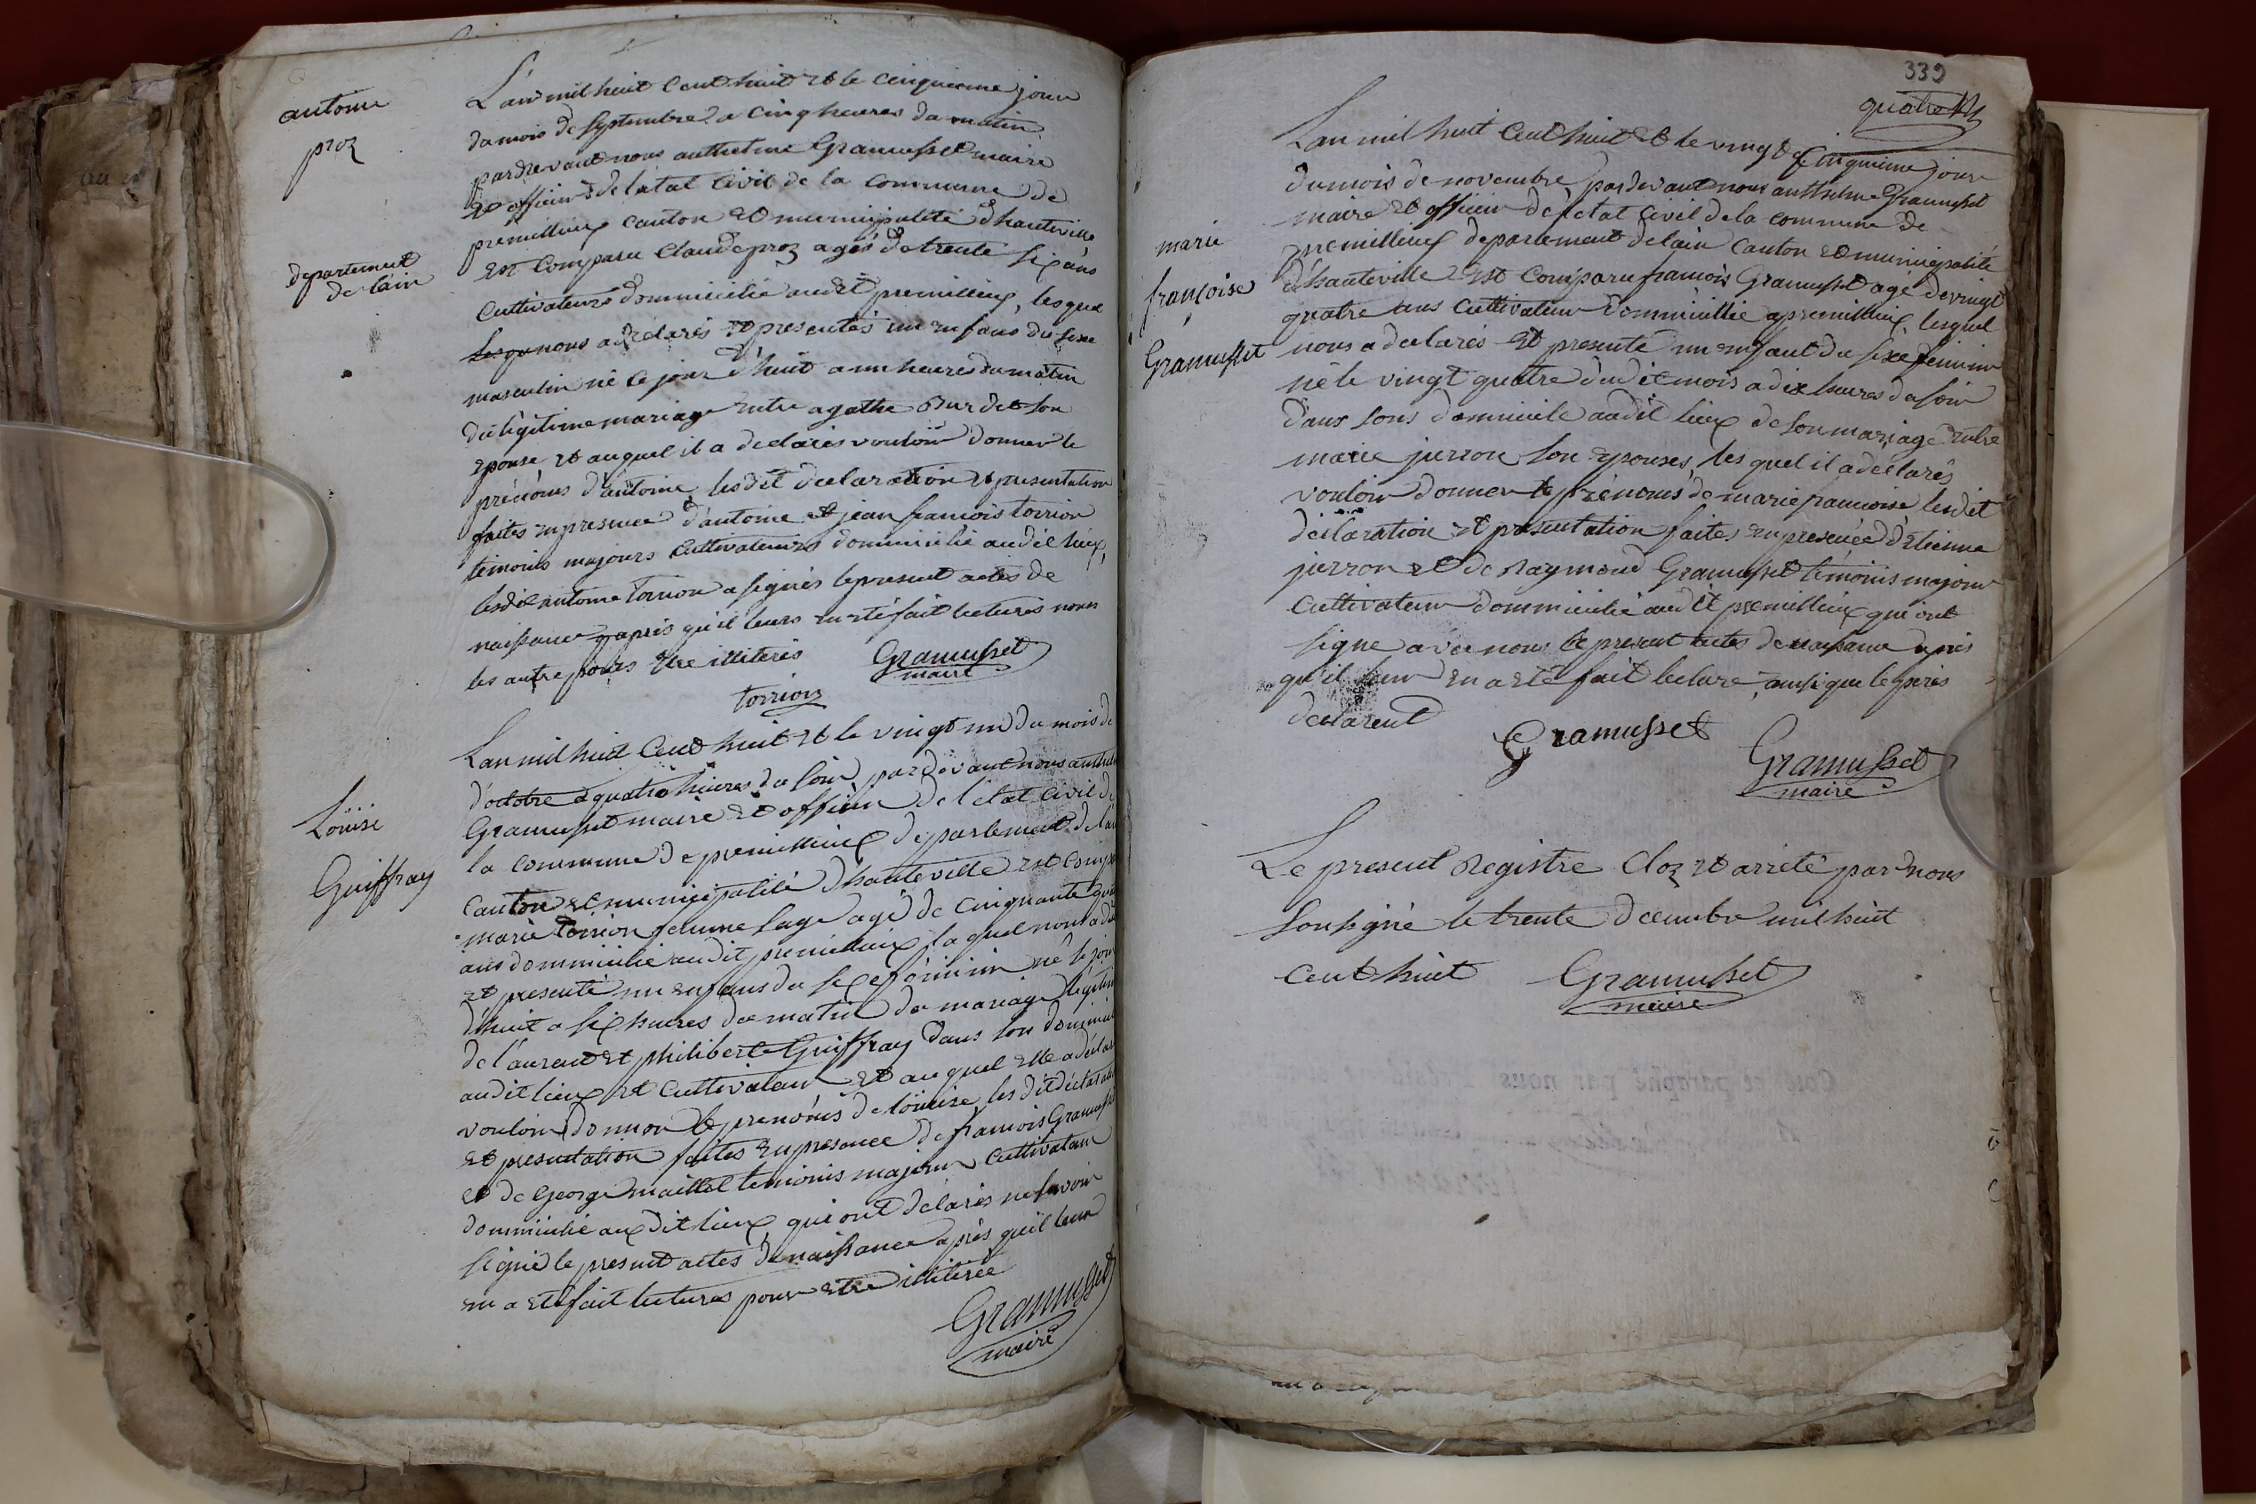 antoine
proz
L'an mil huit cent huit et le cinquieme jour
du mois de Septembre a cinq heures du matin
pardevant nous anthelme Gramusset maire
et officier de l'etat Civil de la commune de
premillieux canton et municipalité d'hauteville
departement
de lain
Est Comparu Claude proz agés de trente six ans
Cultivateurs dommicilié audit premillieux, lesquel
lesque nous a declarés et presentés un enfans du sexe
masculin né ce jour d'huit a un heures du matin
du légitime mariage entre agathe Burdet son
epouse et auquel il a declarés vouloir donner le
prénoms d'antoine, lesdit declaration et presentation
faites en presence d'antoine et jean francois torrion
temoins majours Cultivateurs dommicilié audit lieux,
lesdit antoine torrion a signés le present actes de
naissance apres qu'il leurs en eté fait lectures nous
les autre pours etre illiterés
Gramusset
maire
torrion
Louise
Guiffray
L'an mil huit Cent huit et le vingt un du mois de
d'octobre a quatre heures du soir, pardevant nous anthel
Gramusset maire et officier de l'etat civil de
la commune de premillieux departement de lai
Canton et municipalité d'hauteville est compa
marie torrion femme sage agé de cinquante
ans dommicilié audit premillieux la quel nous a dé
et presenté un enfans du sexe féminin né le jour
d'huit a six heures du matin du mariage légitim
de l'aurent et philiberte Guiffray dans son domicil
audit lieux et Cultivateur et au quel elle a déclar
vouloir donner le prenoms de loüise, les dit declarat
et presentation faites en presence de francois Gramuss
et de George maillet temoins majeur Cultivateur
dommicilié aux dit lieux, qui ont déclarés ne savoir
signé le present actes de naissance après qu'il leur
en a eté fait lectures pour etre illiterée
Gramusset
maire
339
quatre
L'an mil huit Cent huit et le vingt Cinquieme jour
du mois de novembre pardevant nous anthelme Gramusset
maire et officier de l'etat Civil de la commune de
premillieux departement de lain Canton et municipalité
marie
françoise
Gramusset
d'hauteville Est Comparu francois Gramusset agé de vingt
quatre ans Cultivateur dommicillié a premillieux, lesquel
nous a declarés et presenté un enfant du sexe féminin
né le vingt quatre dudit mois a dix heures du soir
dans sons domicile audit lieux de son mariage entre
marie juron son epouses, les quel il a declarés
vouloir donner le prénoms de marie francoise lesdit
declaration et presentation faites en presence d'etienne
jurron et de Raymond Gramusset témoins majour
Cultivateur dommicilié audit premillieux qui ont
signe avec nous le present actes de naissance apres
qu'il leur en a eté fait lecture, ainsi que le peres
declarent
Gramusset
Gramusset
maire
Le present Registre Cloz et arreté par nous
soussigné le trente decembre mil huit
cent huit
Gramusset
maire